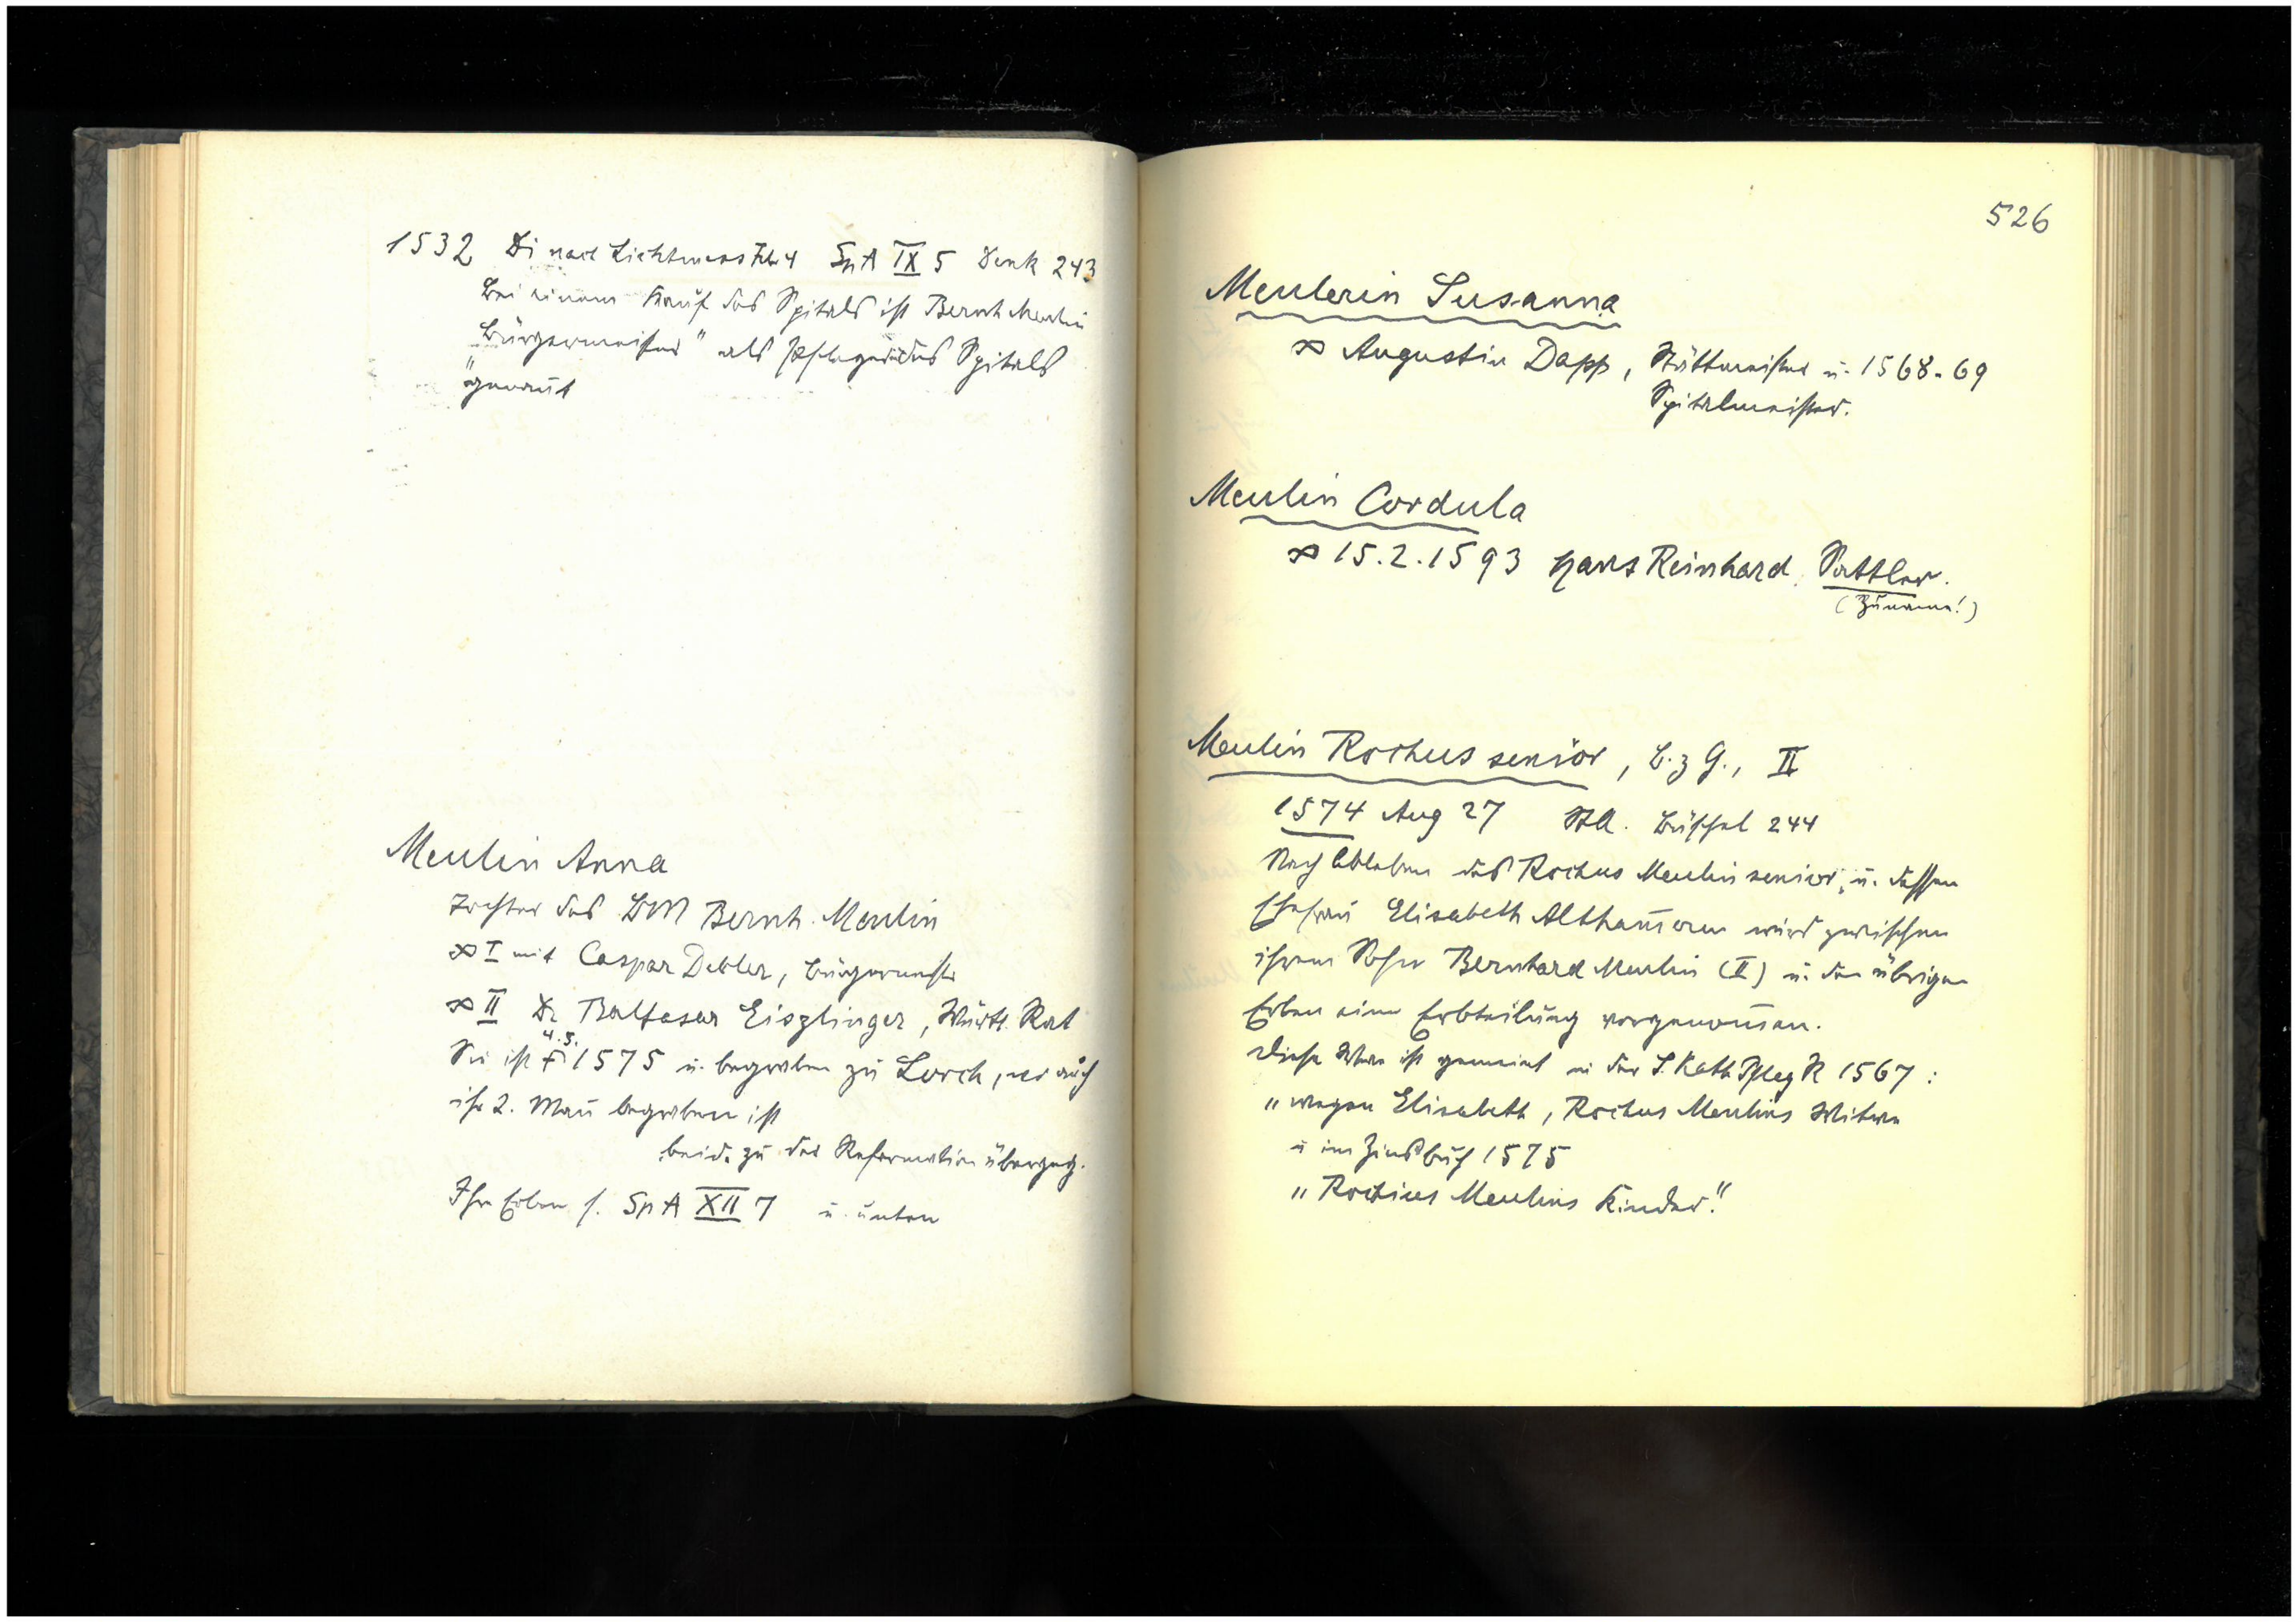 1532 Di nach Lichtmess Febr 4 Sp A IX 5 Denk 243
Bei einem Kauf des Spitals ist Bernh Meulin
„Bürgermeister" als Pfleger des Spitals
genannt
Meulin Anna
Tochter des BM Bernh. Meulin
∞ I mit Caspar Debler, Bürgermeister
∞ II Dr Baltasar Eiszlinger, Württ. Rat
Sie ist † 4.5. 1575 u. begraben zu Lorch, wo auch
ihr 2. Mañ begraben ist
beide zu der Reformation übergeg.
Ihre Erben s. Sp A XII 7 u. unten
526
Meulerin Susanna
∞ Augustin Dapp, Stättmeister u. 1568-69
Spitalmeister.
Meulin Cordula
∞ 15.2.1593 Hans Reinhard Sattler.
(Zuname!)
Meulin Rochus senior, B. z G., II
1574 Aug 27 StA. Büschel 244
Nach Ableben des Rochus Meulin senior, u. dessen
Ehefrau Elisabeth Altham̄erin wird zwischen
ihrem Sohn Bernhard Meulin (II) u. den übrigen
Erben eine Erbteilung vorgenom̄en.
Diese Witwe ist gemeint in der S. Kath Pfleg R 1567:
„wegen Elisabeth, Rochus Meulins Witwe
u im Zinsbuch 1575
„Rochius Meulins Kinder."